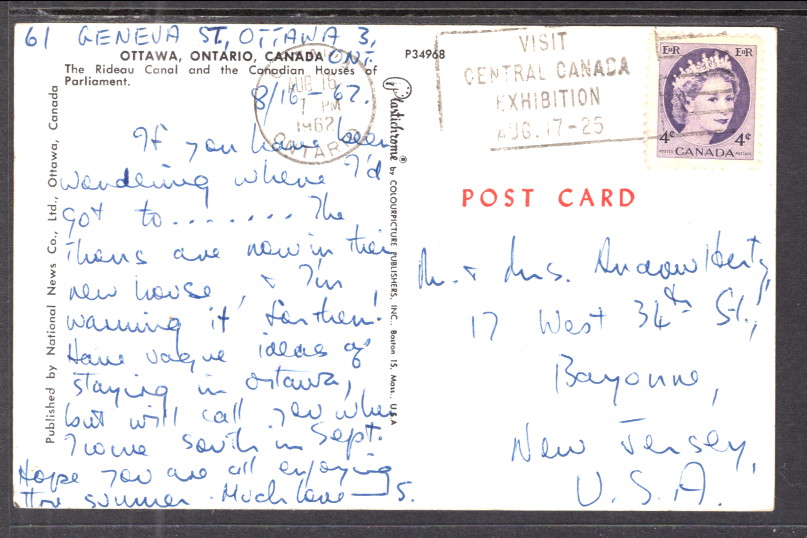 61 GENEVA ST, OTTAWA 3,
ONT.
OTTAWA, ONTARIO, CANADA
The Rideau Canal and the Canadian Houses of
Parliament.
P34968
8/16-62.
If you have been
wondering where I'd
got to........ The
are now in their
new house, & I'm
warming it for them!
Have vague ideas of
staying in Ottawa,
but will call you when
I come south in Sept.
Hope you are all enjoying
the summer. Much love — S.
Published by National News Co., Ltd., Ottawa, Canada
Plastichrome ® by COLOURPICTURE PUBLISHERS, INC., Boston 15, Mass., U.S.A
AUG 16
1 PM
1962
ONTARIO
VISIT
CENTRAL CANADA
EXHIBITION
AUG. 17-25
EIIR EIIR
4¢ 4¢
POSTES CANADA POSTAGE
POST CARD
Mr. & Mrs. Andrew Hertz,
17 West 34th St.,
Bayonne,
New Jersey,
U.S.A.